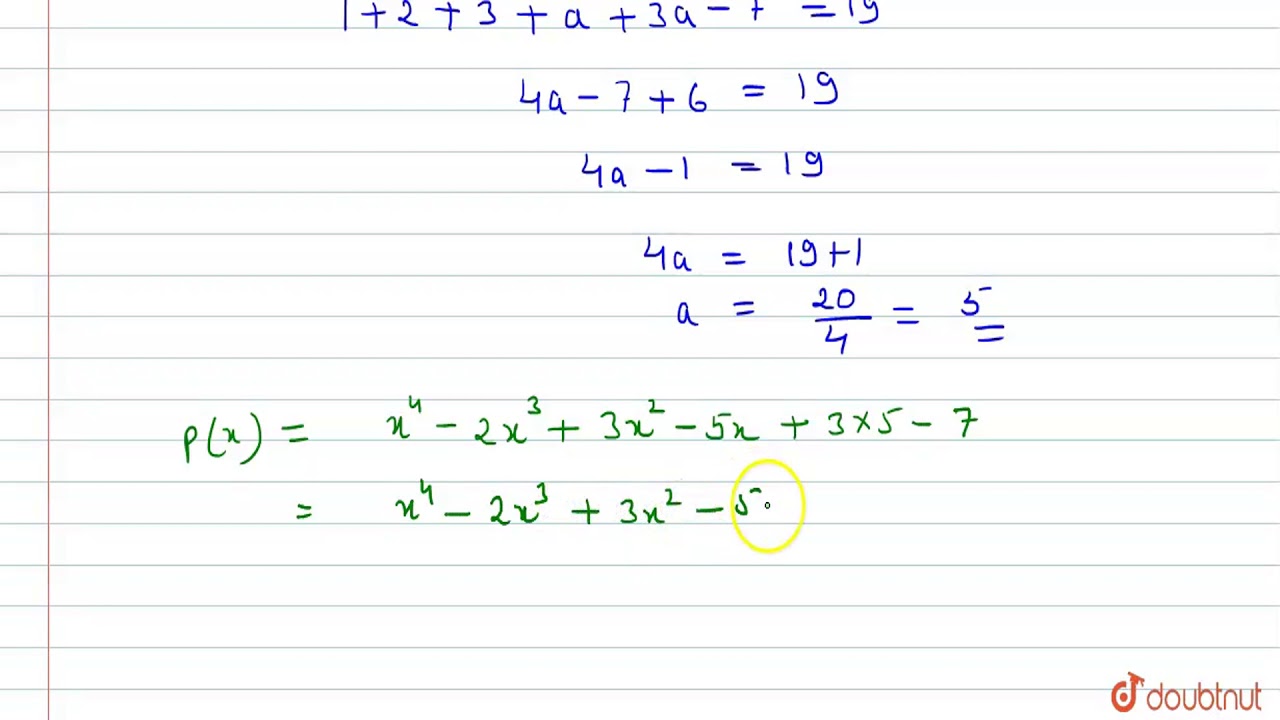 1 + 2 + 3 + a + 3a - 7 = 19
4a - 7 + 6 = 19
4a - 1 = 19
4a = 19 + 1
a = 20/4 = 5
p(x) = x⁴ - 2x³ + 3x² - 5x + 3 × 5 - 7
= x⁴ - 2x³ + 3x² - 5
doubtnut